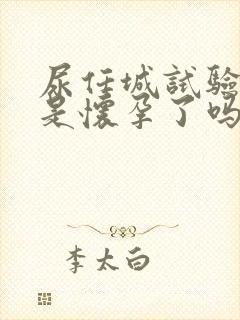 尿任城試驗
是懷孕了嗎
李太白